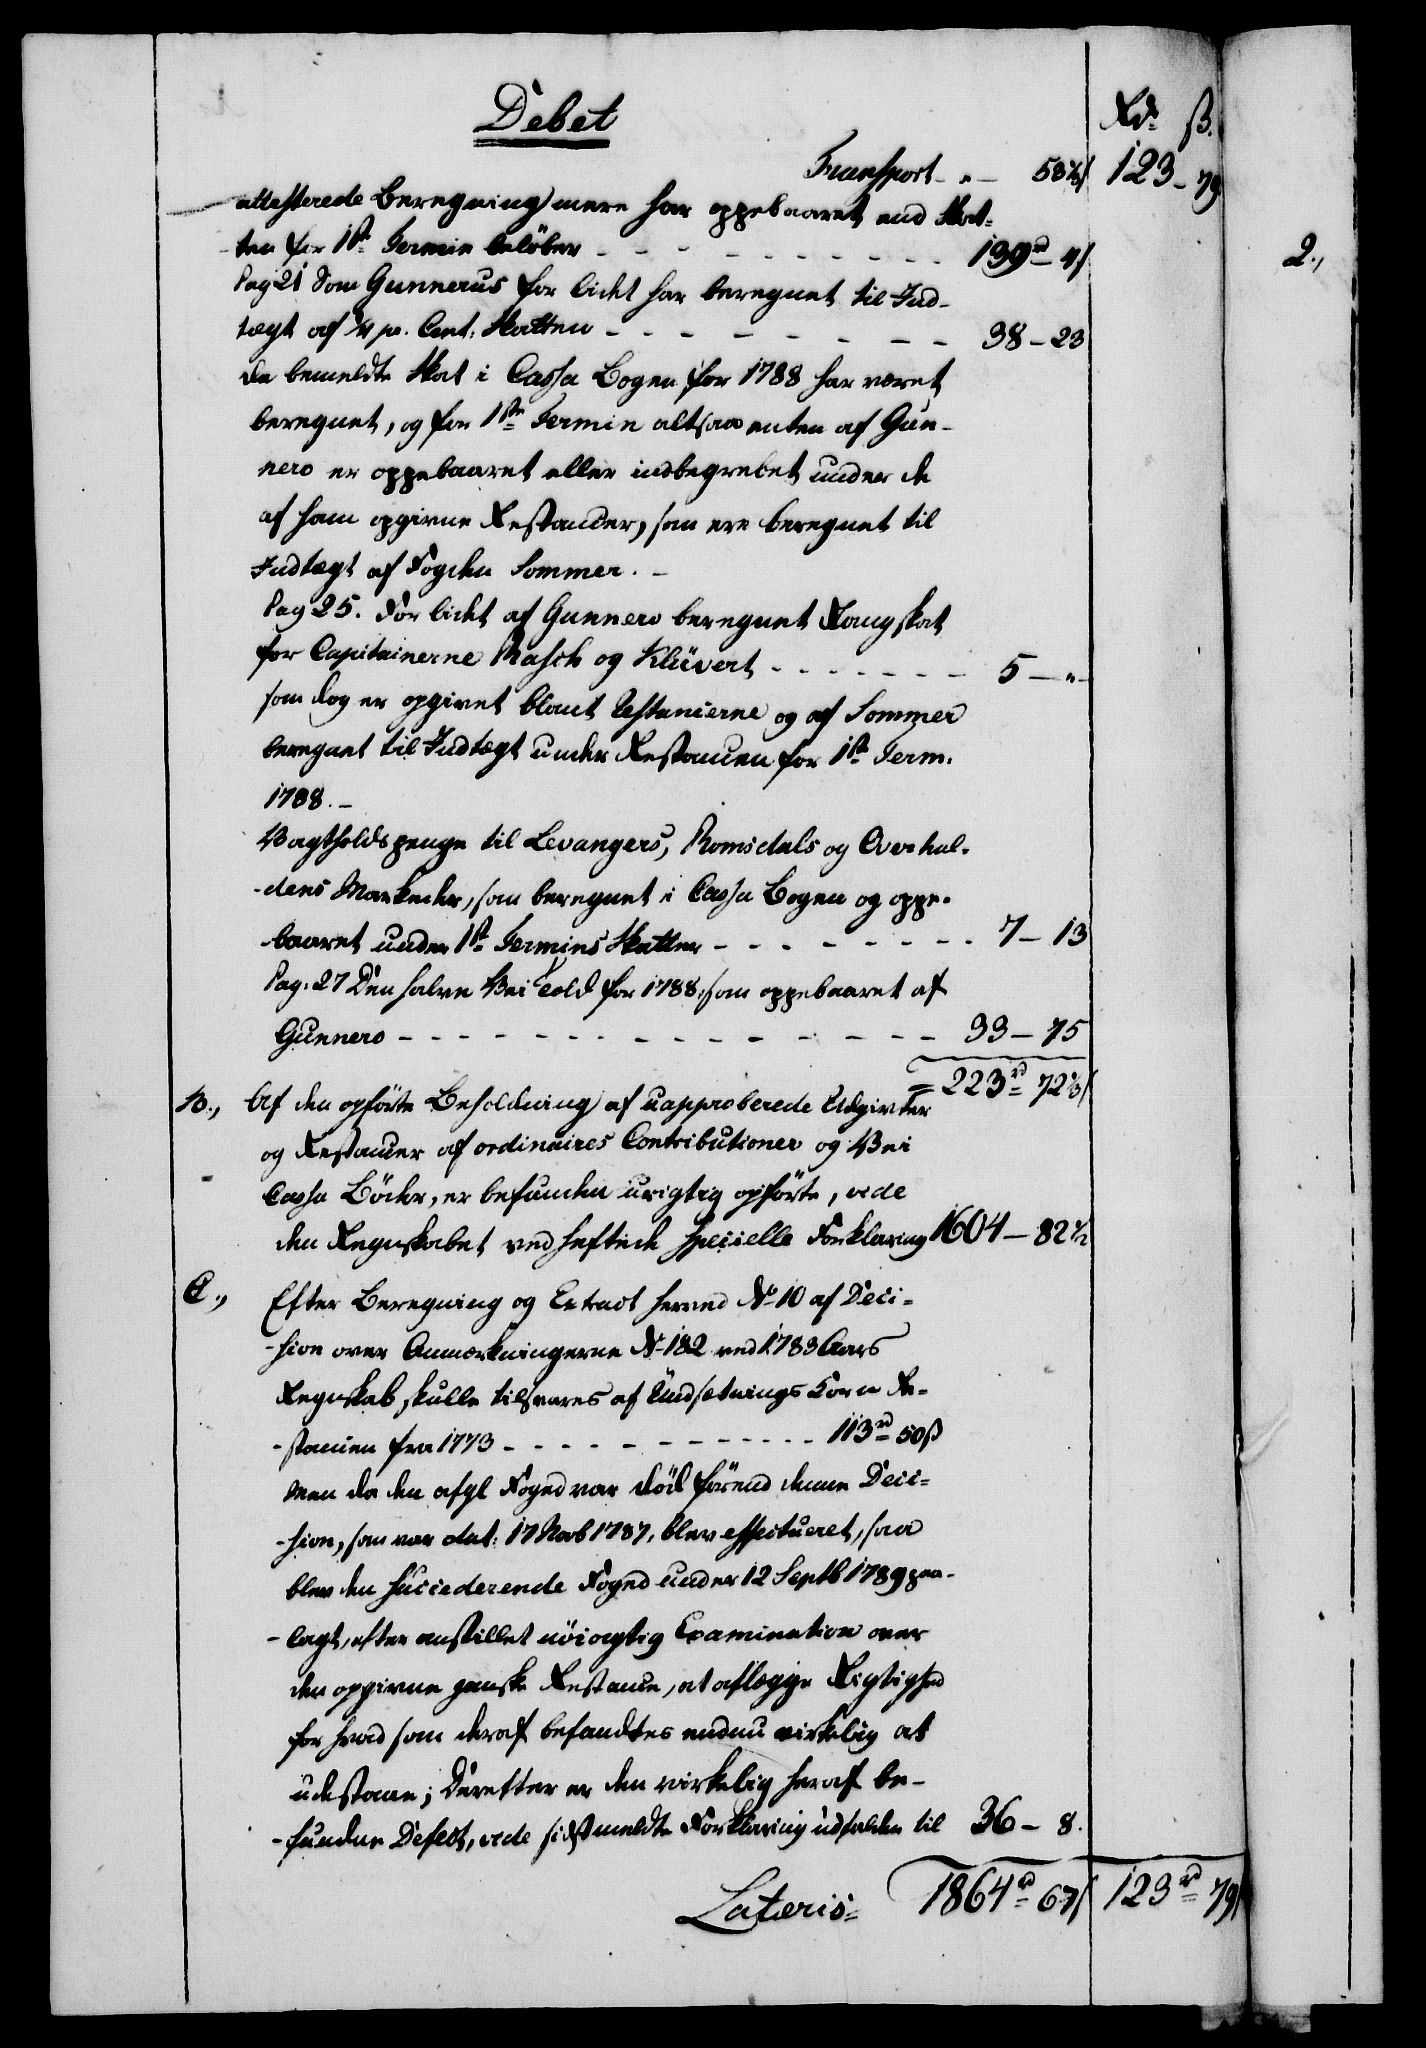 Debet
Rd. ß.
Transport - " - 58½ ß 123 - 79
attesterede Beregning mere har oppebaaret end Skat-
ten for 1ste Termin belöber - - - - - - - - 139rd - 4 ß
Pag 21 Som Gunnerus for lidt har beregnet til Ind-
tægt af ¼ pr. Cent. Skatten - - - - - - - - 38 - 23
da bemeldte Skat i Cassa Bogen for 1788 har været
beregnet, og for 1ste Termin altsaa enten af Gun-
nero er oppebaaret eller indbegrebet under de
af ham opgivne Restancer, som ere beregnet til
Indtægt af Fogden Sommer. -
Pag 25. For lidt af Gunnero beregnet Rangskat
for Capitainerne Rasch og Klüvert - - - - - - - 5 - " -
som dog er opgivet blant Restancerne og af Sommer
beregnet til Indtægt under Restancen for 1ste Term.
1788. -
Vagtholdspenge til Levangers, Romsdals og Overhal-
-dens Markeder, som beregnet i Cassa Bogen og oppe-
-baaret under 1ste Termins Skatter - - - - - - - - 7 - 13
Pag. 27 Den halve Vei Told for 1788, som oppebaaret af
Gunnero - - - - - - - - - - - - - - 33 - 75
= 223rd 72½ ß
B., Af den opförte Beholdning af uapproberede Udgivter
og Restancer af ordinaires Contributioner og Vei
Cassa Böder, er befunden urigtig opförte, vide
den Regnskabet vedheftede specielle Forklaring 1604 - 82½
C., Efter Beregning og Extract herved No 10 af Deci-
-sion over Anmærkningerne No 182 ved 1783 Aars
Regnskab, skulle tilsvares af Undsætnings Korn Re-
-stancen fra 1773 - - - - - - - - - - - - 113rd 50 ß
Men da den afgl Foged var död förend denne Deci-
-sion, som var dat: 17 Novb 1787, blev effectueret, saa
blev den succederende Foged under 12 Septb 1789 paa-
-lagt, efter anstillet nöiagtig Examination over
den opgivne ganske Restance, at aflægge Rigtighed
for hvad som deraf befandtes endnu virkelig at
udestaae; Derefter er den virkelig heraf be-
-fundne Defect, vide sidstmeldte Forklaring udfalden til 36 - 8.
Lateris = 1864rd 67 ß 123rd 79 ß
2.,